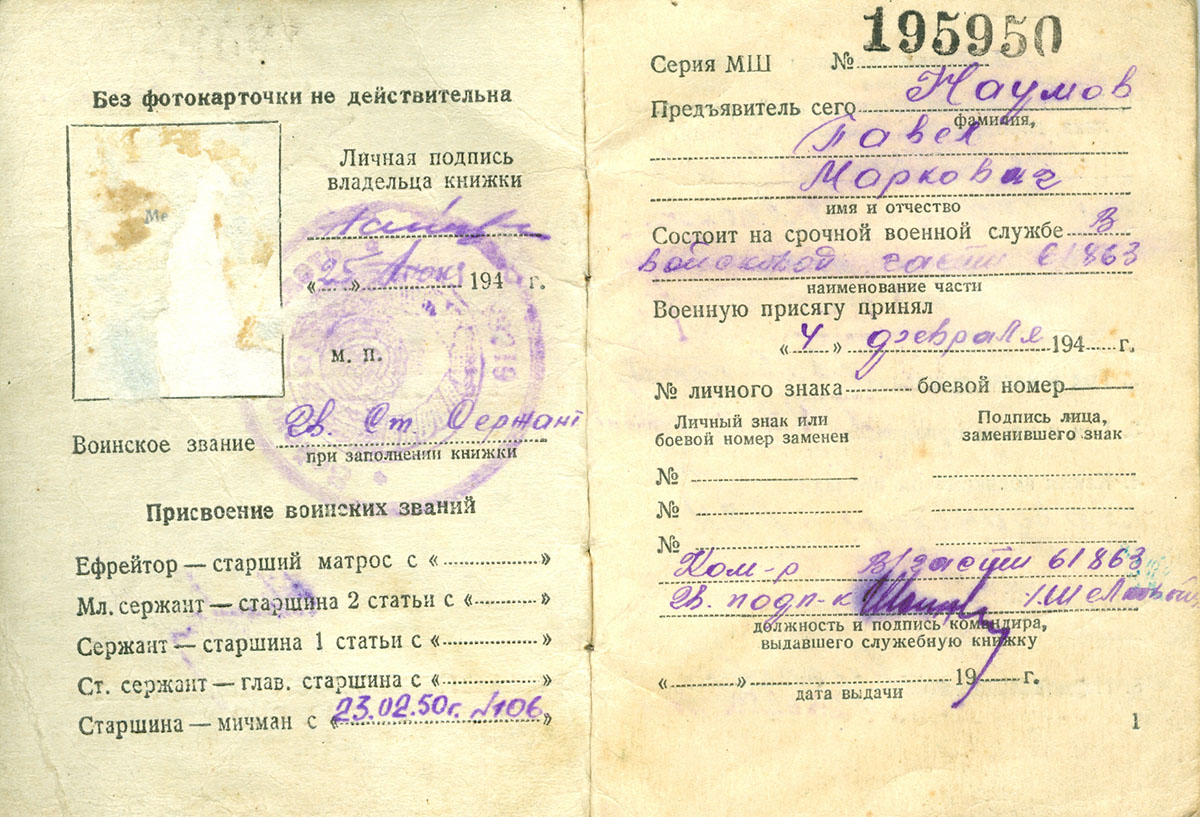 Без фотокарточки не действительна
Личная подпись
владельца книжки
« 25 » июня 194 г.
м. п.
Воинское звание Гв. Ст. Сержант
при заполнении книжки
Присвоение воинских званий
Ефрейтор — старший матрос с «............»
Мл. сержант — старшина 2 статьи с «............»
Сержант — старшина 1 статьи с «............»
Ст. сержант — глав. старшина с «............»
Старшина — мичман с « 23.02.50г. №106 »
Серия МШ № 195950
Предъявитель сего Наумов
фамилия,
Павел
Маркович
имя и отчество
Состоит на срочной военной службе в
войсковой части 61863
наименование части
Военную присягу принял
« 4 » февраля 194 г.
№ личного знака ........ боевой номер
Личный знак или
боевой номер заменен
Подпись лица,
заменившего знак
№
№
№
Ком-р в/части 61863
Гв. подп-к
должность и подпись командира,
выдавшего служебную книжку
«............» ............ 19 г.
дата выдачи
1